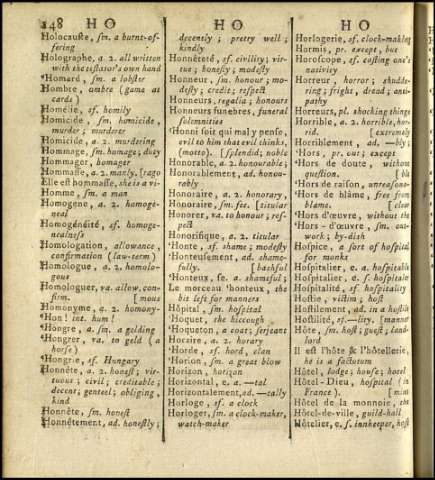 248 HO HO HO
Holocauste, sm. a burnt-of-
fering
Holographe, a. 2. all written
with the testator's own hand
‘Homard, sm. a lobster
Hombre, ombre (game at
cards)
Homélie, sf. homily
Homicide, sm. homicide,
murder; murderer
Homicide, a. 2. murdering
Hommage, sm. homage; duty
Hommager, homager
Hommasse, a. 2. manly. [rago
Elle est hommasse, she is a vi-
Homme, sm. a man
Homogene, a. 2. homoge-
neal
Homogénéité, sf. homoge-
nealness
Homologation, allowance,
confirmation (law-term)
Homologue, a. 2. homolo-
gous
Homologuer, va. allow, con-
firm. [mous
Homonyme, a. 2. homony-
‘Hon! int. hum!
‘Hongre, a. sm. a gelding
‘Hongrer, va. to geld (a
horse)
‘Hongrie, sf. Hungary
Honnête, a. 2. honest; vir-
tuous; civil; creditable;
decent; genteel; obliging,
kind
Honnête, sm. honest
Honnêtement, ad. honestly;
decently; pretty well;
kindly
Honnêteté, sf. civility; vir-
tue; honesty; modesty
Honneur, sm. honour; mo-
desty; credit; respect
Honneurs, regalia; honours
Honneurs funebres, funeral
solemnities
‘Honni soit qui mal y pense,
evil to him that evil thinks,
(motto). [splendid; noble
Honorable, a. 2. honourable;
Honorablement, ad. honou-
rably
Honoraire, a. 2. honorary,
Honoraire, sm. fee. [titular
Honorer, va. to honour; res-
pect
Honorifique, a. 2. titular
‘Honte, sf. shame; modesty
‘Honteusement, ad. shame-
fully. [bashful
‘Honteux, se, a. shameful;
Le morceau ‘honteux, the
bit left for manners
Hôpital, sm. hospital
‘Hoquet, the hiccough
‘Hoqueton, a coat; serjeant
Horaire, a. 2. horary
‘Horde, sf. hord, clan
‘Horion, sm. a great blow
Horizon, horizon
Horizontal, e. a. —tal
Horizontalement, ad. —cally
Horloge, sf. a clock
Horloger, sm. a clock-maker,
watch-maker
Horlogerie, sf. clock-making
Hormis, pr. except, but
Horoscope, sf. casting one's
nativity
Horreur, horror; shudde-
ring; fright, dread; anti-
pathy
Horreurs, pl. shocking things
Horrible, a. 2. horrible, hor-
rid. [extremely
Horriblement, ad. —bly;
‘Hors, pr. out; except
‘Hors de doute, without
question.
‘Hors de raison, unreasona-
‘Hors de blâme, free from
blame. [clear
‘Hors d'œuvre, without the
‘Hors-d'œuvre, sm. out-
work; by-dish
Hospice, a sort of hospital
for monks
Hospitalier, e. a. hospitable
Hospitalier, e. s. hospitaler
Hospitalité, sf. hospitality
Hostie, victim; host
Hostilement, ad. in a hostile
Hostilité, sf. —lity. [manner
Hôte, sm. host; guest; land-
lord
Il est l'hôte & l'hôtellerie,
he is a factotum
Hôtel, lodge; house; hotel
Hôtel-Dieu, hospital (in
France). [mint
Hôtel de la monnoie, the
Hôtel-de-ville, guild-hall
Hôtelier, e. s. innkeeper, host